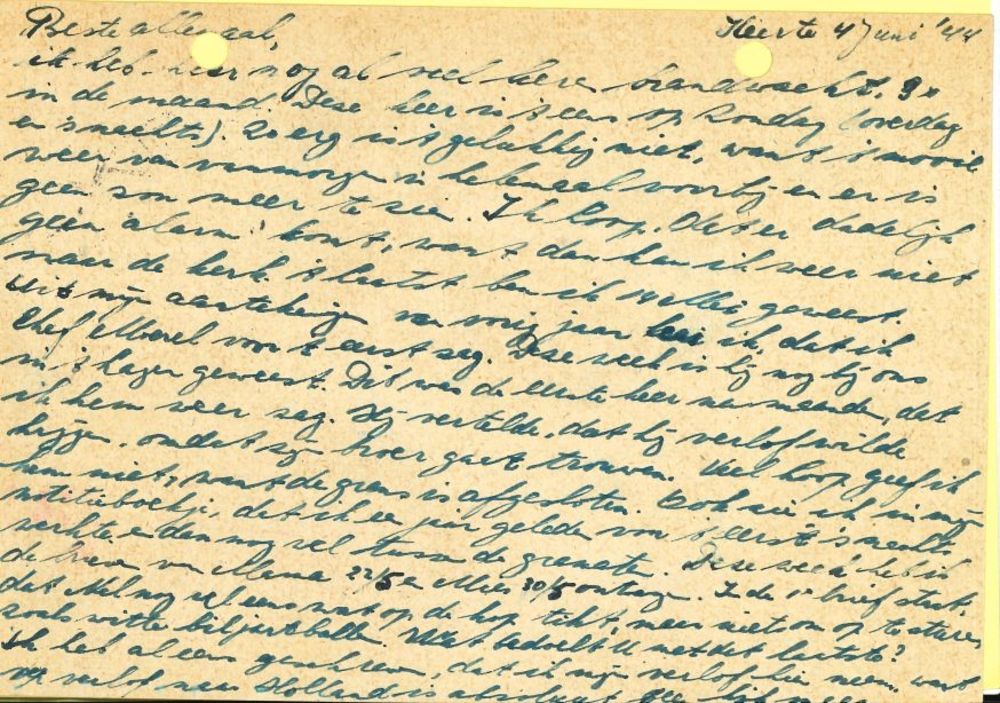 Beste allemaal, Heerte 4 Juni '44
ik heb hier nog al veel keren brandwacht, 9x
in de maand. Deze keer is 't eens op Zondag (overdag
en 's nachts). Zo erg is 't gelukkig niet, want 't mooie
weer van vanmorgen is helemaal voorbij en er is
geen zon meer te zien. Ik hoop, dat er dadelijk
geen "alarm" komt, want dan kan ik weer niet
naar de kerk. 't laatst ben ik 14 Mei geweest.
Uit mijn aantekeningen van vorig jaar ik, dat ik
Chef Morel voor 't eerst zag. Deze week is hij nog bij ons
in 't geweest. Dit was de eerste keer na maanden, dat
ik hem weer zag. Hij vertelde, dat hij verlof wilde
krijgen, omdat zijn broer gaat trouwen. Veel hoop geef ik
hem niet, want de grens is afgesloten. Ook zie ik in mijn
notitieboekje, dat ik een jaar geleden voor 't eerst 's nachts
werkte en dan nog wel tussen de granaten. Deze week heb ik
de brieven van Mama 22/5 en Mies 30/5 ontvangen. In de 1e brief staat,
dat nog wel eens wat op de kop tikt, maar niet om op te sturen
zoals witte biljartballen. Wat bedoelt U met dat laatste?
Ik heb al eens geschreven, dat ik mijn verlof hier neem, want
op verlof naar Holland is absoluut geen